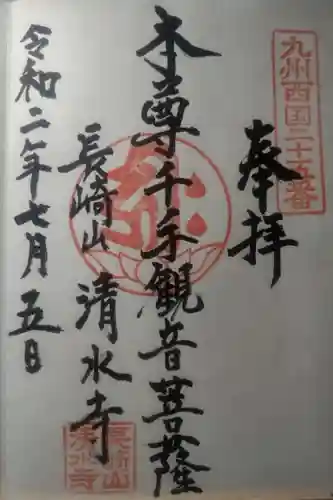 九州西国二十五番
奉拝
本尊千手観音菩薩
長崎山 清水寺
長崎山
清水寺
令和二年七月五日